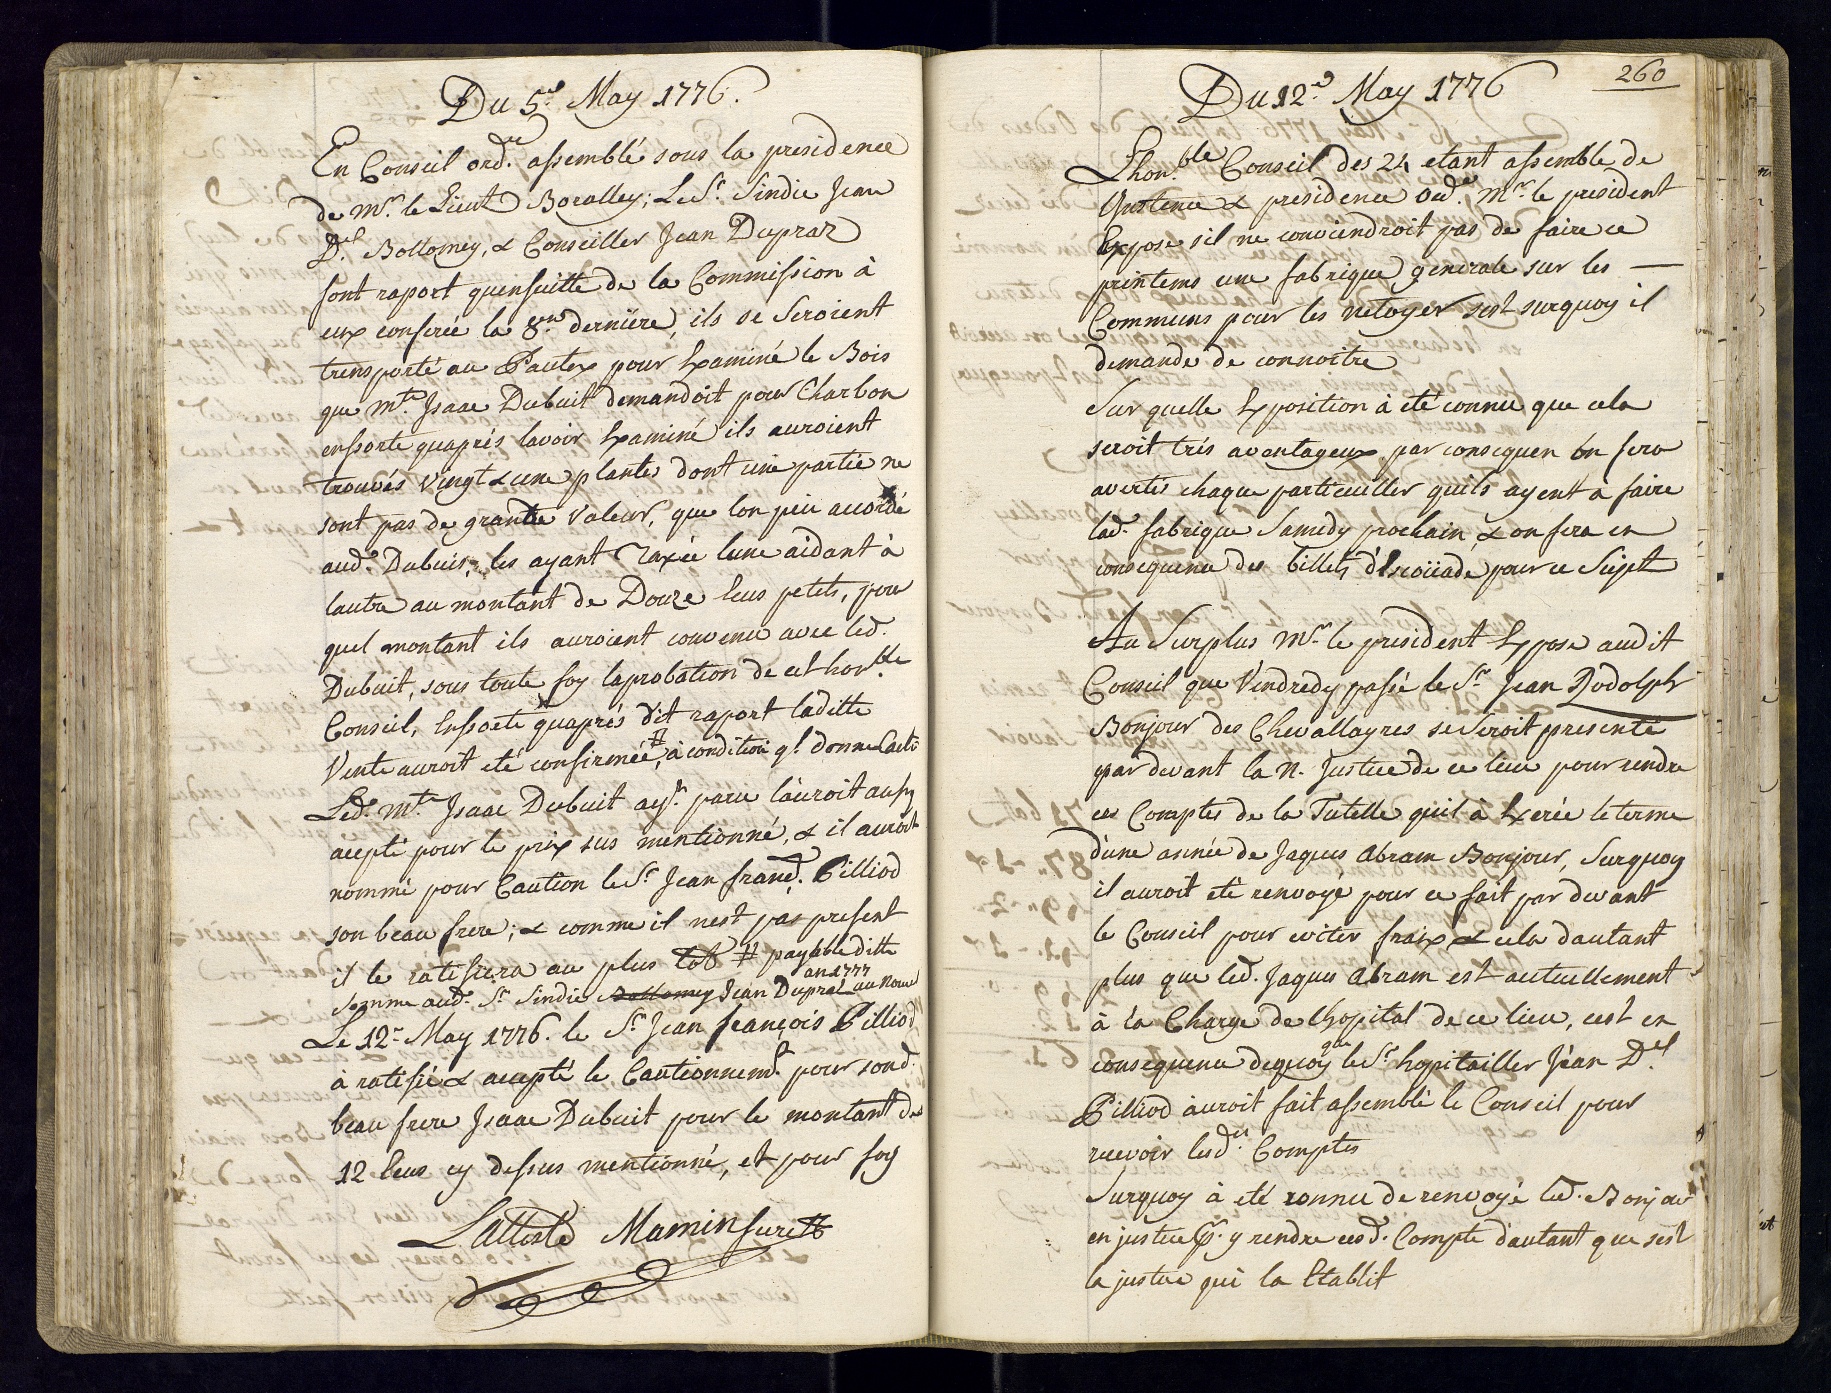 Du 5.e May 1776.
En Conseil ord.re assemblé sous la presidence
de Mr. le Lieut Boralley; Le Sr. Sindic Jean
D.l Bolomey, & Conseiller Jean Dupraz
font raport quensuitte de la Commission à
eux conferée la 8.ne derniere, ils se seroient
transporté au Pautex pour Examiné le Bois
que m.tre Isaac Dubuit demandoit pour Charbon
ensorte quaprés lavoir Examiné ils auroient
trouvés vingt & une plantes dont une partie ne
sont pas de grande valeur, que lon peu accordé
aud. Dubuis, les ayant Taxée lune aidant à
lautre au montant de Douze leus petits, pour
quel montant ils auroient convenu avec led.
Dubuit, sous toute foy laprobation de cet hon.ble
Conseil, Ensorte quaprés dit raport laditte
Vente auroit eté confirmée, # à condition ql. donne Cauti
Led. m.tre Isaac Dubuit ayt. paru lauroit aussy
acepté pour le prix sus mentionné, & il auroit
nommé pour Caution le Sr. Jean franç. Pilliod
son beau frere; & comme il nest pas present
il le ratifiera au plus tot # payable ditte
somme aud. Sr. Sindic Bollomey Jean Dupraz au Nouvel
an 1777
Le 12.e May 1776. le Sr. Jean françois Pilliod
à ratifié & accepté le Cautionnemt. pour sond.
beau frere Isaac Dubuit pour le montant des
12 leus cy dessus mentionné, et pour foy
L'atteste Mamin secret.
Du 12.e May 1776
260
Lhon.ble Conseil des 24 etant assemblé de
Jnstence & presidence ord.re Mr. le president
Expose sil ne conviendroit pas de faire ce
printems une fabrique generale sur les —
Communs pour les netoyer sest surquoy il
demande de connoitre
Sur quelle Exposition à eté connu que cela
seroit trés aventageux par consequen on fera
avertir chaque particuiller quils ayent a faire
lad. fabrique Samedy prochain, & on fera en
consequence des billets d'Escoüade pour ce Sujet
Au Surplus Mr. le president Expose audit
Conseil que Vendredy passé le Sr. Jean Rodolph
Bonjour des Chevallayres se seroit presenté
par devant la N. Justice de ce lieu pour rendre
ces Comptes de la Tutelle quil à Exercé le terme
d'une année de Jaques Abram Bonjour, Surquoy
il auroit eté renvoyé pour ce fait par devant
le Conseil pour eviter fraix & cela dautant
plus que led. Jaques Abram est actuellement
à la Charge de lhopital de ce lieu, cest en
consequence dequoy que le Sr. hopitailler Jean D.el
Pilliod auroit fait assemblé le Conseil pour
recevoir lesd.ts Comptes
Surquoy à eté connu de renvoyé led. Bonjour
en justice pr. y rendre cesd. Compte d'autant que sest
la justice qui la Etablit